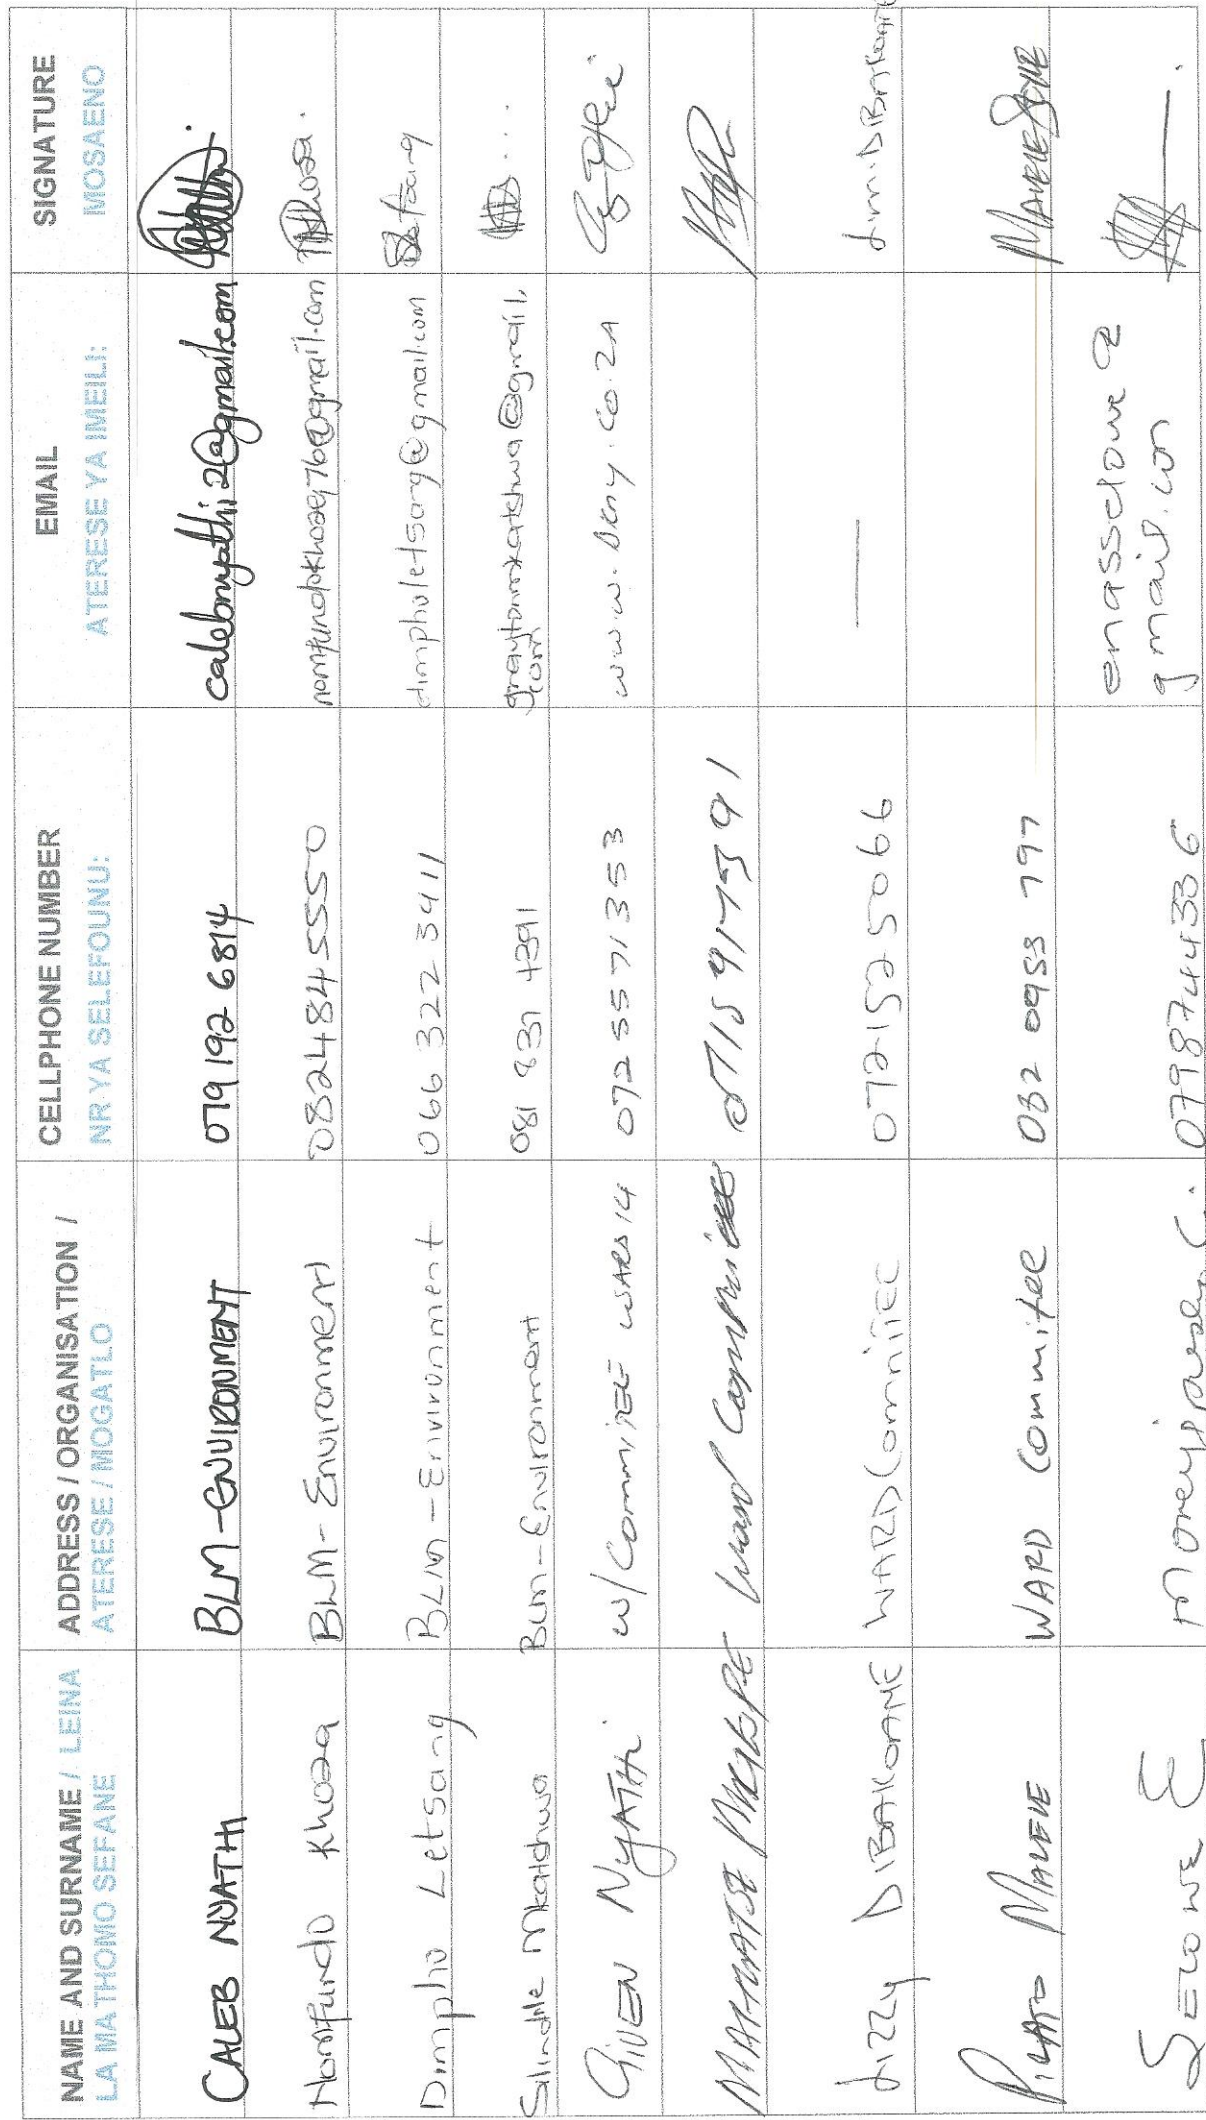 NAME AND SURNAME / LEINA LA MATHOMO SEFANE
ADDRESS / ORGANISATION / ATERESE / MOGATLO
CELLPHONE NUMBER NR YA SELEFOUNU:
EMAIL ATERESE YA IMEILI:
SIGNATURE MOSAENO
CALEB NYATHI BLM-ENVIRONMENT 079 192 6814 calebnyathi2@gmail.com
Nomfundo Khoza BLM-Environment 0824845550 Khoza.
Dimpho Letsang BLM-Environment 066 322 3411 dimpholetsang@gmail.com Letsang
Silindile Mkatshwa BLM-Environment 081 837 4391 graytonmkatshwa@gmail.com
GIVEN NYATHI W/COMMITEE WARD 14 072 557 1353
Ward Committee
Lizzy DIBAKOANE WARD Committee 0721525066 —
MALELE WARD Commitee 0953 797
SEWOWE E 0798744336 gmail.com